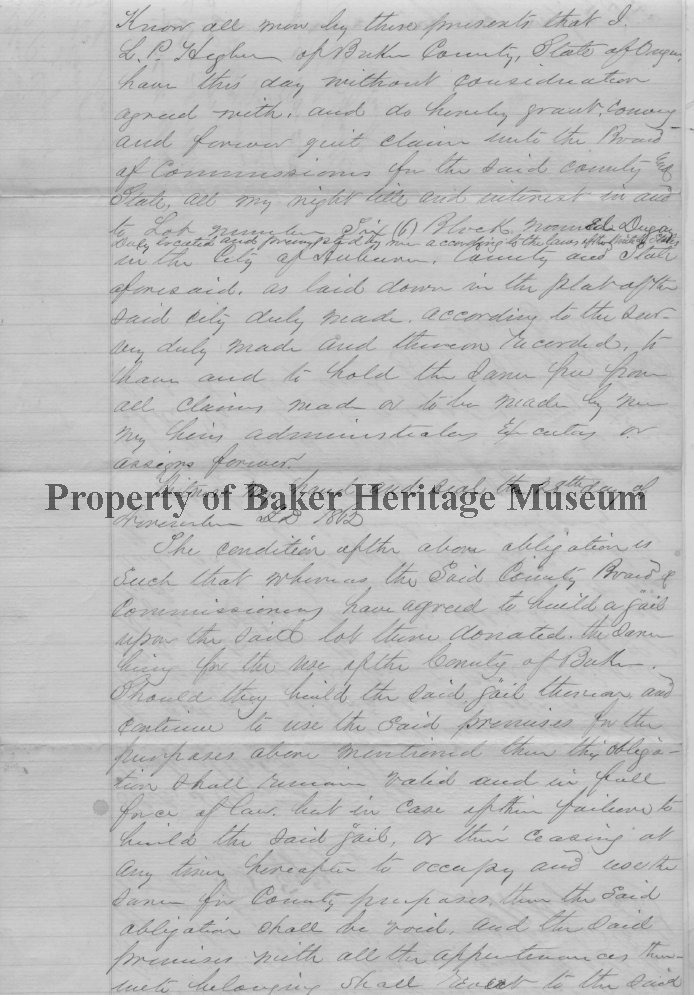 Know all men by these presents that I.
L. P. Higbee of Baker County, State of Oregon,
have this day without consideration
agreed with, and do hereby grant, convey
and forever quit claim unto the Board
of Commissioners for the said county &
State, all my right title and interest in and
to Lot number Six (6) Block
duly located and preempted by me according to the laws of the United States
in the City of Auburn, County and State
aforesaid, as laid down in the plat of the
said city duly made, according to the sur-
vey duly made and thereon recorded, to
have and to hold the same free from
all claims made or to be made by me
my heirs administrators Executors or
assigns forever.
Witness my hand and seal this day of
Property of Baker Heritage Museum
November AD 1862
The condition of the above obligation is
Such that whereas the Said County Board of
Commissioners have agreed to build a jail
upon the said lot there donated, the same
being for the use of the County of Baker.
Should they build the said jail thereon and
continue to use the said premises for the
purposes above mentioned then this obliga-
tion shall remain valid and in full
force of law, but in case of their failure to
build the said jail, or their ceasing at
any time hereafter to occupy and use the
same for County purposes, then the said
obligation shall be void, and the said
premises with all the appurtenances there-
unto belonging shall revert to the said